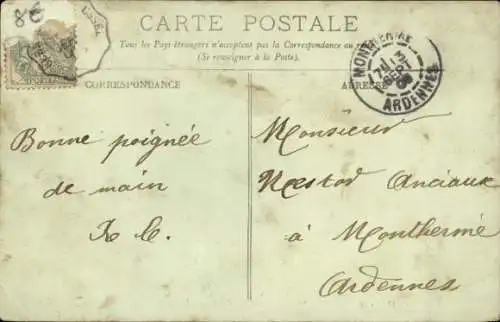 8€
USSEL
CARTE POSTALE
Tous les Pays étrangers n'acceptent pas la Correspondance au
(Se renseigner à la Poste).
MONTHERMÉ
ARDENNES
CORRESPONDANCE
ADRESSE
Bonne poignée
de main
Monsieur
Nestor Anciaux
à Monthermé
Ardennes